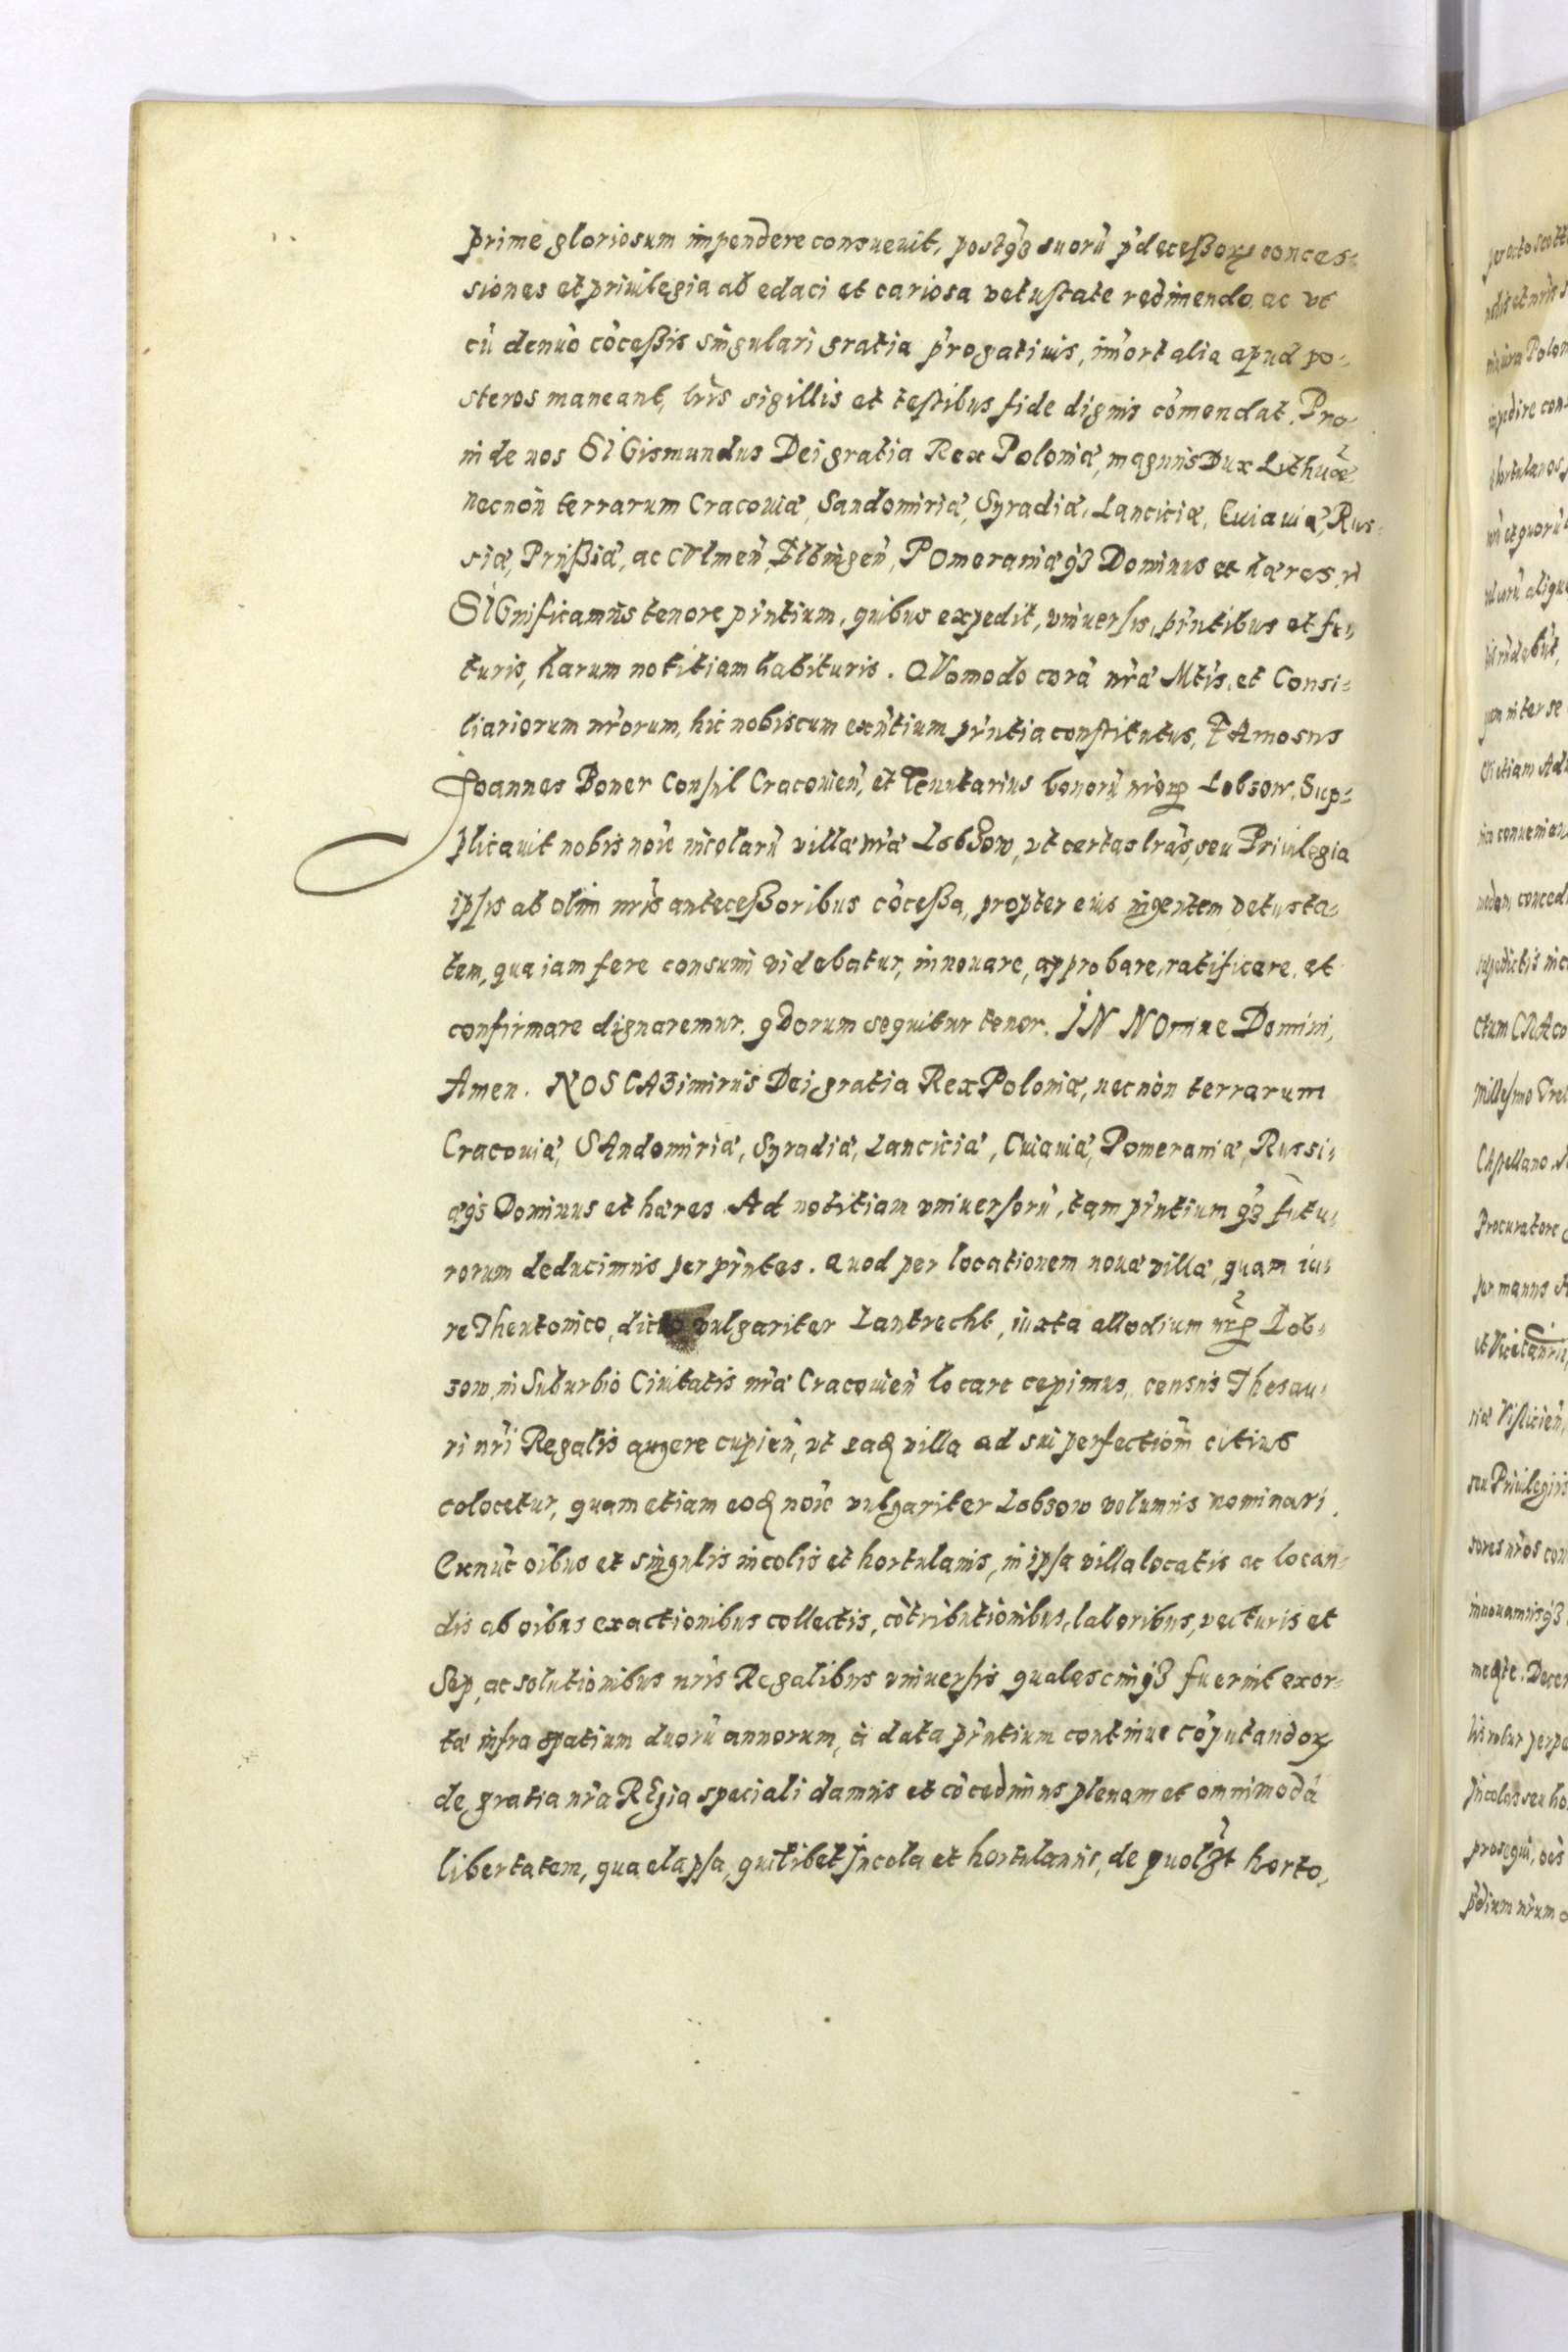 prime gloriosum impendere consueuit, postq̃ȝ suorũ p̃deceßorꝝ conces=
siones et priuilegia ab edaci et cariosa vetustate redimendo, ac vt
cũ denuo cõceßis singulari gratia p̃rogatiuis, im̃ortalia apud po-
steros maneant, lr̃is sigillis et testibus fide dignis cõmendat. Pro-
inde nos SIGismundus Dei gratia Rex Poloniæ, magnus Dux Lithuæ
necnon terrarum Cracouiæ, Sandomiriæ, Syradiæ, Lanciciæ, Cuiauiæ, Rus=
siæ, Prußiæ, ac CVlmeñ, Elbingeñ, POmeraniæq̃ȝ Dominus et hæres.
SIGnificamus tenore pñtium, quibus expedit, vniuersis, pñtibus et fu=
turis, harum notitiam habituris. QVomodo corã nr̃a Mtis, et Consi=
liariorum nr̃orum, hic nobiscum exñtium pñtia constitutus, FAmosus
Joannes Boner Consul Cracouieñ, et Tenutarius bonorũ nr̃oꝝ Lobzow, Sup=
plicauit nobis noĩe incolarũ villæ nr̃æ Lobzow, vt certas lr̃as, seu Priuilegia
ipsis ab olim nr̃is anteceßoribus cõceßa, propter eius ingentem vetusta=
tem, qua iam fere consumi videbatur, innouare, approbare, ratificare, et
confirmare dignaremur. qVorum sequitur tenor. IN NOmine Domini,
Amen. NOS CAZimirus Dei gratia Rex Poloniæ, necnon terrarum
Cracouiæ, SAndomiriæ, Syradiæ, Lanciciæ, Cuiauiæ, Pomeraniæ, Russi=
æq̃ȝ Dominus et hæres. Ad notitiam vniuersorũ, tam pñtium q̃ȝ futu=
rorum deducimus per pñtes. Quod per locationem nouæ villæ, quam iu=
re Theutonico, dicto vulgariter Lantrecht, iuxta allodium nr̃ꝝ Lob=
zow, in Suburbio Ciuitatis nr̃æ Cracouieñ locare cepimus, census Thesau=
ri nr̃i Regalis augere cupieñ, vt eadꝫ villa ad sui perfectiom̃ citius
colocetur, quam etiam eodꝫ noĩe vulgariter Lobzow volumus nominari.
Exnũc oĩbus et singulis incolis et hortulanis, in ipsa villa locatis ac locan=
dis ab oĩbus exactionibus collectis, cõtributionibus, laboribus, vecturis et
Sep, ac solutionibus nr̃is Regalibus vniuersis qualescunq̃ȝ fuerint exor=
tæ infra spatium duorũ annorum, a data pñtium continue cõputandoꝝ
de gratia nr̃a REgia speciali damus et cõcedimus plenam et omnimodã
libertatem, qua elapsa, quilibet Jncola et hortulanus, de quolꝫt horto,